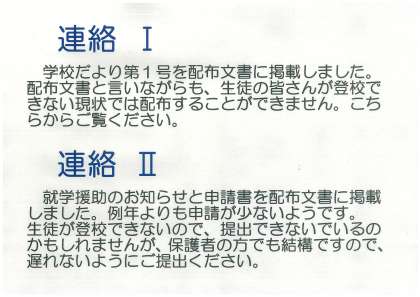 連絡 Ⅰ
学校だより第1号を配布文書に掲載しました。
配布文書と言いながらも、生徒の皆さんが登校で
きない現状では配布することができません。こち
らからご覧ください。
連絡 Ⅱ
就学援助のお知らせと申請書を配布文書に掲載
しました。例年よりも申請が少ないようです。
生徒が登校できないので、提出できないでいるの
かもしれませんが、保護者の方でも結構ですので、
遅れないようにご提出ください。